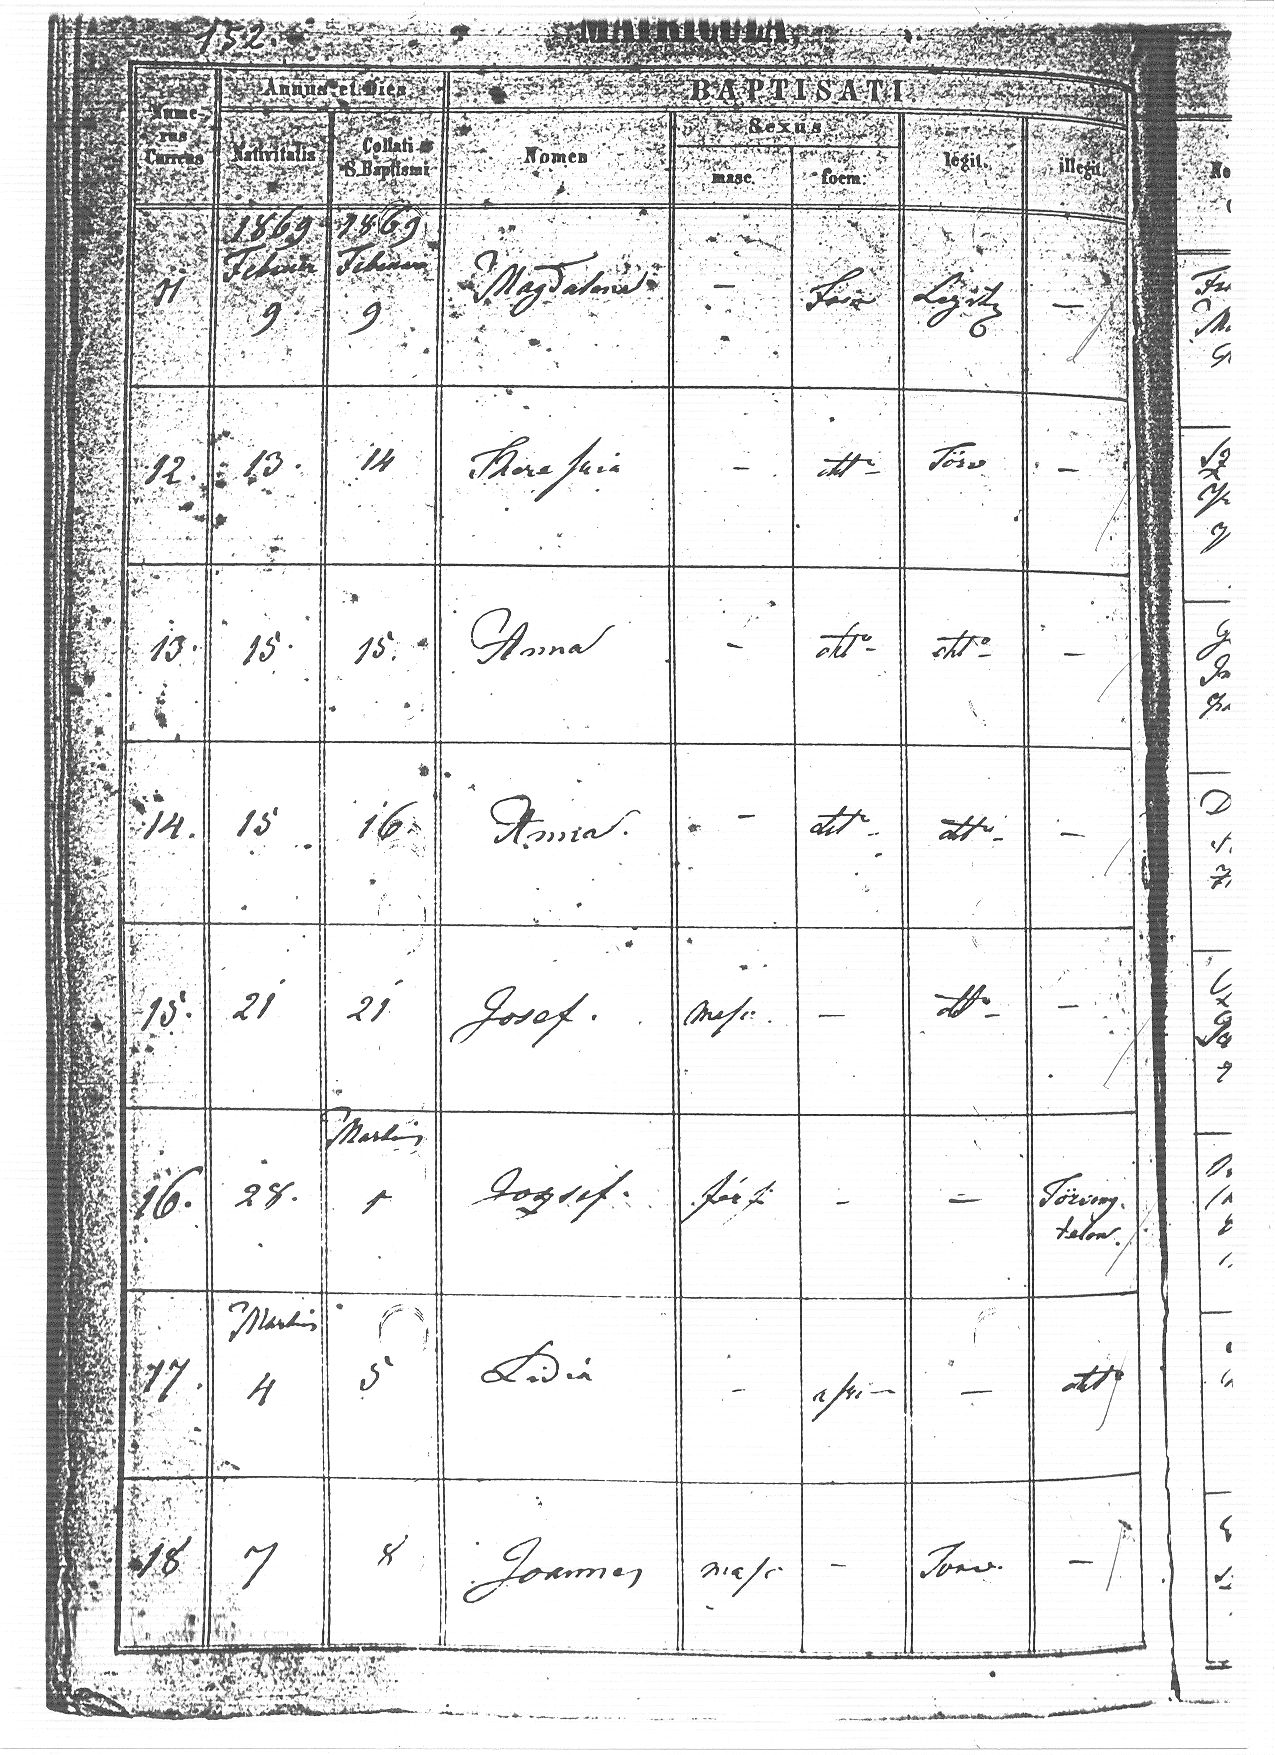 152.
MATRICULA.
Nume-
rus
Currens
Annus et Dies
BAPTISATI.
Nativitatis
Collati
S. Baptismi
Nomen
Sexus
masc.
foem.
legit.
illegit.
11
1869
9
1869
9
Magdalena
—
—
12. 13. 14 Theresia — dtto Törv —
13. 15. 15. Anna — dtto dtto —
14. 15 16 Anna. — dtto dtto —
15. 21 21 Josef. masc. — dtto —
16. 28. Martius
1 József. férfi — — Törvény-
telen.
17. Martius
4 5 Lidia — — dtto
18 7 8 Joannes masc — Törv. —